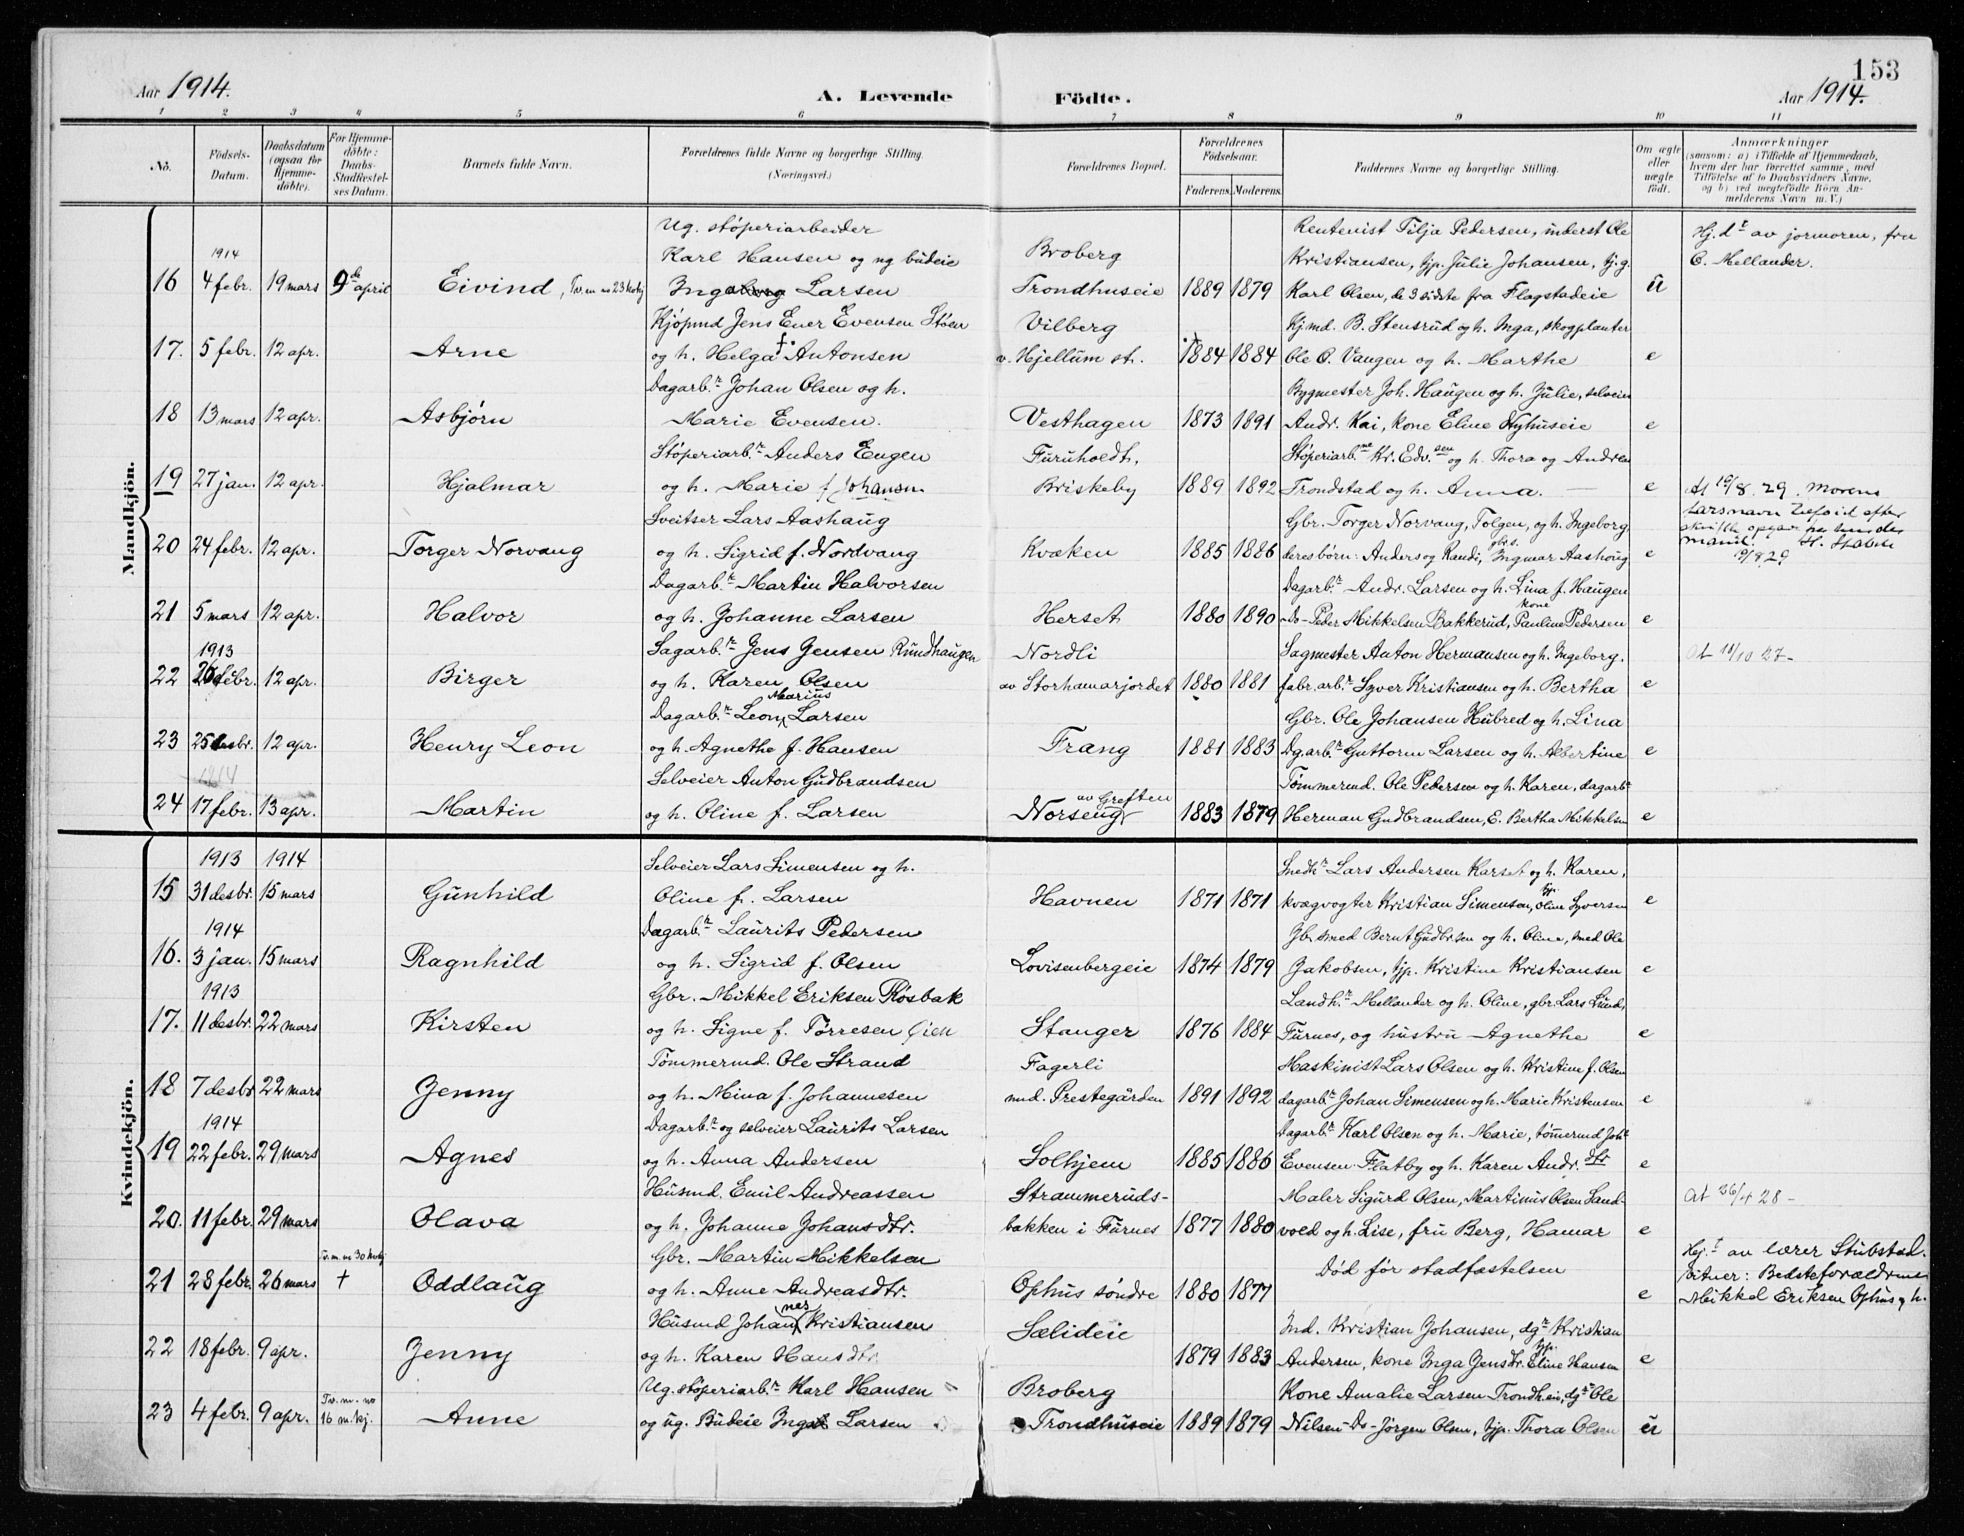 153
Aar 1914.
A. Levende Födte.
Aar 1914.
1 2 3 4 5 6 7 8 9 10 11
No.
Födsels-Datum.
Daabsdatum (ogsaa for Hjemme-döbte).
For Hjemme-döbte: Daabs-Stadfæstel-ses Datum.
Barnets fulde Navn.
Forældrenes fulde Navne og borgerlige Stilling.
(Næringsvei.)
Forældrenes Bopæl.
Forældrenes Födselsaar.
Faderens. Moderens.
Faddernes Navne og borgerlige Stilling.
Om ægte eller uægte födt.
Anmærkninger
(saasom: a) i Tilfælde af Hjemmedaab,
hvem der har forrettet samme, med
Tilföielse af to Daabsvidners Navne,
og b) ved uegtefödte Börn An-
melderens Navn m. V.)
Mandkjön.
Ug. støperiarbeider Rentenist Tilja Pedersen, inderst Ole Hj.dt av jormoren, fru
1914 Karl Hansen og ug budeie Broberg Kristiansen, tjp. Julie Johansen, tj.g. C. Mellander.
16 4 febr. 19 mars 9de april Eivind, Tv. m no 23 kvkj Ingaborg Larsen Trondhuseie 1889 1879 Karl Olsen, de 3 sidste fra Flagstadeie ü
Kjøpmd Jens Ener Evensen Støen Vilberg Kjmd. B. Stensrud og h. Inga, skogplanter
17. 5 febr. 12 apr. Arne og h. Helga Antonsen v. Hjellum st. 1884 1884 Ole C. Vangen og h. Marthe e
Dagarb.r Johan Olsen og h. Bygmester Joh. Haugen og h. Julie, selveier
18 13 mars 12 apr. Asbjørn Marie Evensen. Vesthagen 1873 1891 Andr. Kai, kone Eline Nyhuseie e
Støperiarb.r Anders Engen Furuholdt, Støperiarb.ne Kr. Edv.sen og h. Thora og Andreas
19 27 jan. 12 apr. Hjalmar og h. Marie f Johansn. Briskeby 1889 1892 Trondstad og h. Anna. e At 19/8. 29. Morens
Sveitser Lars Aashaug Gbr. Torger Norvang, Tolgen, og h. Ingeborg farsnavn
20 24 febr. 12 apr. Torger Norvang og h. Sigrid f. Nordvang Kvæken 1885 1886 deresbørn: Anders og Randi, gbrs. Ingmar Aashoug e 19/8 29
Dagarb.r Martin Halvorsen Dagarb.r Andr. Larsen og h. Lina f. Haugen
21 5 mars 12 apr. Halvor og h. Johanne Larsen Herset 1880 1890 Do- Peder Mikkelsen Bakkerud, kone Pauline Pedersen e
1913 Sagarb.r Jens Jensen Rundhaugen Nordli Sagmester Anton Hermansen og h. Ingeborg. At 11/10 27-
22 26 febr. 12 apr. Birger og h. Karen Olsen av Storhamarjordet 1880 1881 fabr.arb.r Syver Kristiansen og h. Bertha e
Dagarb.r Leon Marius Larsen Gbr. Ole Johansen Hubred og h. Lina
23 25 desbr. 12 apr. Henry Leon og h. Agnethe f. Hansen Frang 1881 1883 Dg.arb.r Guttorm Larsen og h. Albertine e
1914 Selveier Anton Gudbrandsen av Greften Tømmermd. Ole Pedersen og h. Karen, dagarb.r
24 17 febr. 13 apr. Martin og h. Oline f. Larsen Norseng 1883 1879 Herman Gudbrandsen, E. Bertha Mikkelsen e
Kvindekjön.
1913 1914 Selveier Lars Simensen og h. Smedm.r Lars Andersen Karset og h. Karen,
15 31 desbr. 15 mars Gunhild Oline f. Larsen Havnen 1871 1871 kvægvogter Kristian Simensen, tjp. Oline Syversen e
1914 Dagarb.r Laurits Pedersen Jb. smed Bernt Gudbrsen og h. Oline, smed Ole
16. 3 jan. 15 mars Ragnhild og h. Sigrid f. Olsen Lovisenbergeie 1874 1879 Jakobsen, tjp. Kristine Kristiansen e
1913 Gbr. Mikkel Eriksen Røsbak Landh.r Mellander og h. Oline, gbr Lars Lunds,
17. 11 desbr. 22 mars Kirsten og h. Signe f. Torresen Øien Stanger 1876 1884 Furnes, og hustru Agnethe e
Tømmermd. Ole Strand Fagerli Maskinist Lars Olsen og h. Kristine f. Olsen
18 7 desbr 22 mars Jenny og h. Mina f. Johannesen und. Prestegården 1891 1892 dagarb.r Johan Simensen og h. Marie Kristensen e
1914 Dagarb.r og selveier Laurits Larsen Dagarb.r Karl Olsen og h. Marie, tømmermd Joh.
19 22 febr. 29 mars Agnes og h. Anna Andersen Solhjem 1885 1886 Evensen Flatby og h. Karen Andr. dtr e
Husmd. Emil Andreassen Strammeruds- Maler Sigurd Olsen, Martinus Olsen Sand- At 26/4 28-
20. 11 febr. 29 mars Olava og h. Johanne Johansdtr. bakken i Furnes 1877 1880 vold og h. Lise, fru Berg, Hamar e
Tv. m. no 30 kvkj Gbr. Martin Mikkelsen Død før stadfæstelsen Hj.t av lærer Stubstad.
21 28 febr. 26 mars † Oddlaug og h. Anne Andreasdtr. Ophus søndre 1880 1877 e Vitner: Bedsteforældrene
Mikkel Eriksen Ophus og h.
Husmd Johannes Kristiansen Sælideie Ind. Kristian Johansen, dg.r Kristian
22 18 febr. 9 apr. Jenny og h. Karen Hansdtr. 1879 1883 Andersen, kone Inga Jensdtr. tjp. Eline Hansen e
Ug. støperiarb.r Karl Hansen Broberg Kone Amalie Larsen Trondh.eie, dg.r Ole
23 4 febr. 9 apr. Tv. m. no 16 m. kj. Anne og ug. Budeie Inga Larsen Trondhuseie 1889 1879 Nilsen Do- Jørgen Olsen, tjp. Thora Olsen ü